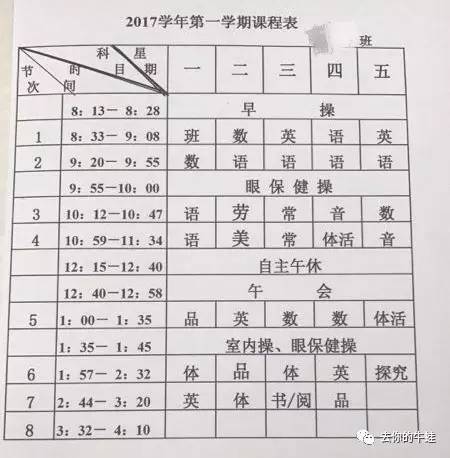 2017学年第一学期课程表
班
科 星
节 时 目 期 一 二 三 四 五
次 间
8：13－8：28 早 操
1 8：33－9：08 班 数 英 语 英
2 9：20－9：55 数 语 语 语 语
9：55－10：00 眼保健操
3 10：12－10：47 语 劳 常 音 数
4 10：59－11：34 语 美 常 体活 音
12：15－12：40 自主午休
12：40－12：58 午 会
5 1：00－1：35 品 英 数 数 体活
1：35－1：45 室内操、眼保健操
6 1：57－2：32 体 品 体 英 探究
7 2：44－3：20 英 体 书/阅 品
8 3：32－4：10
去你的牛娃